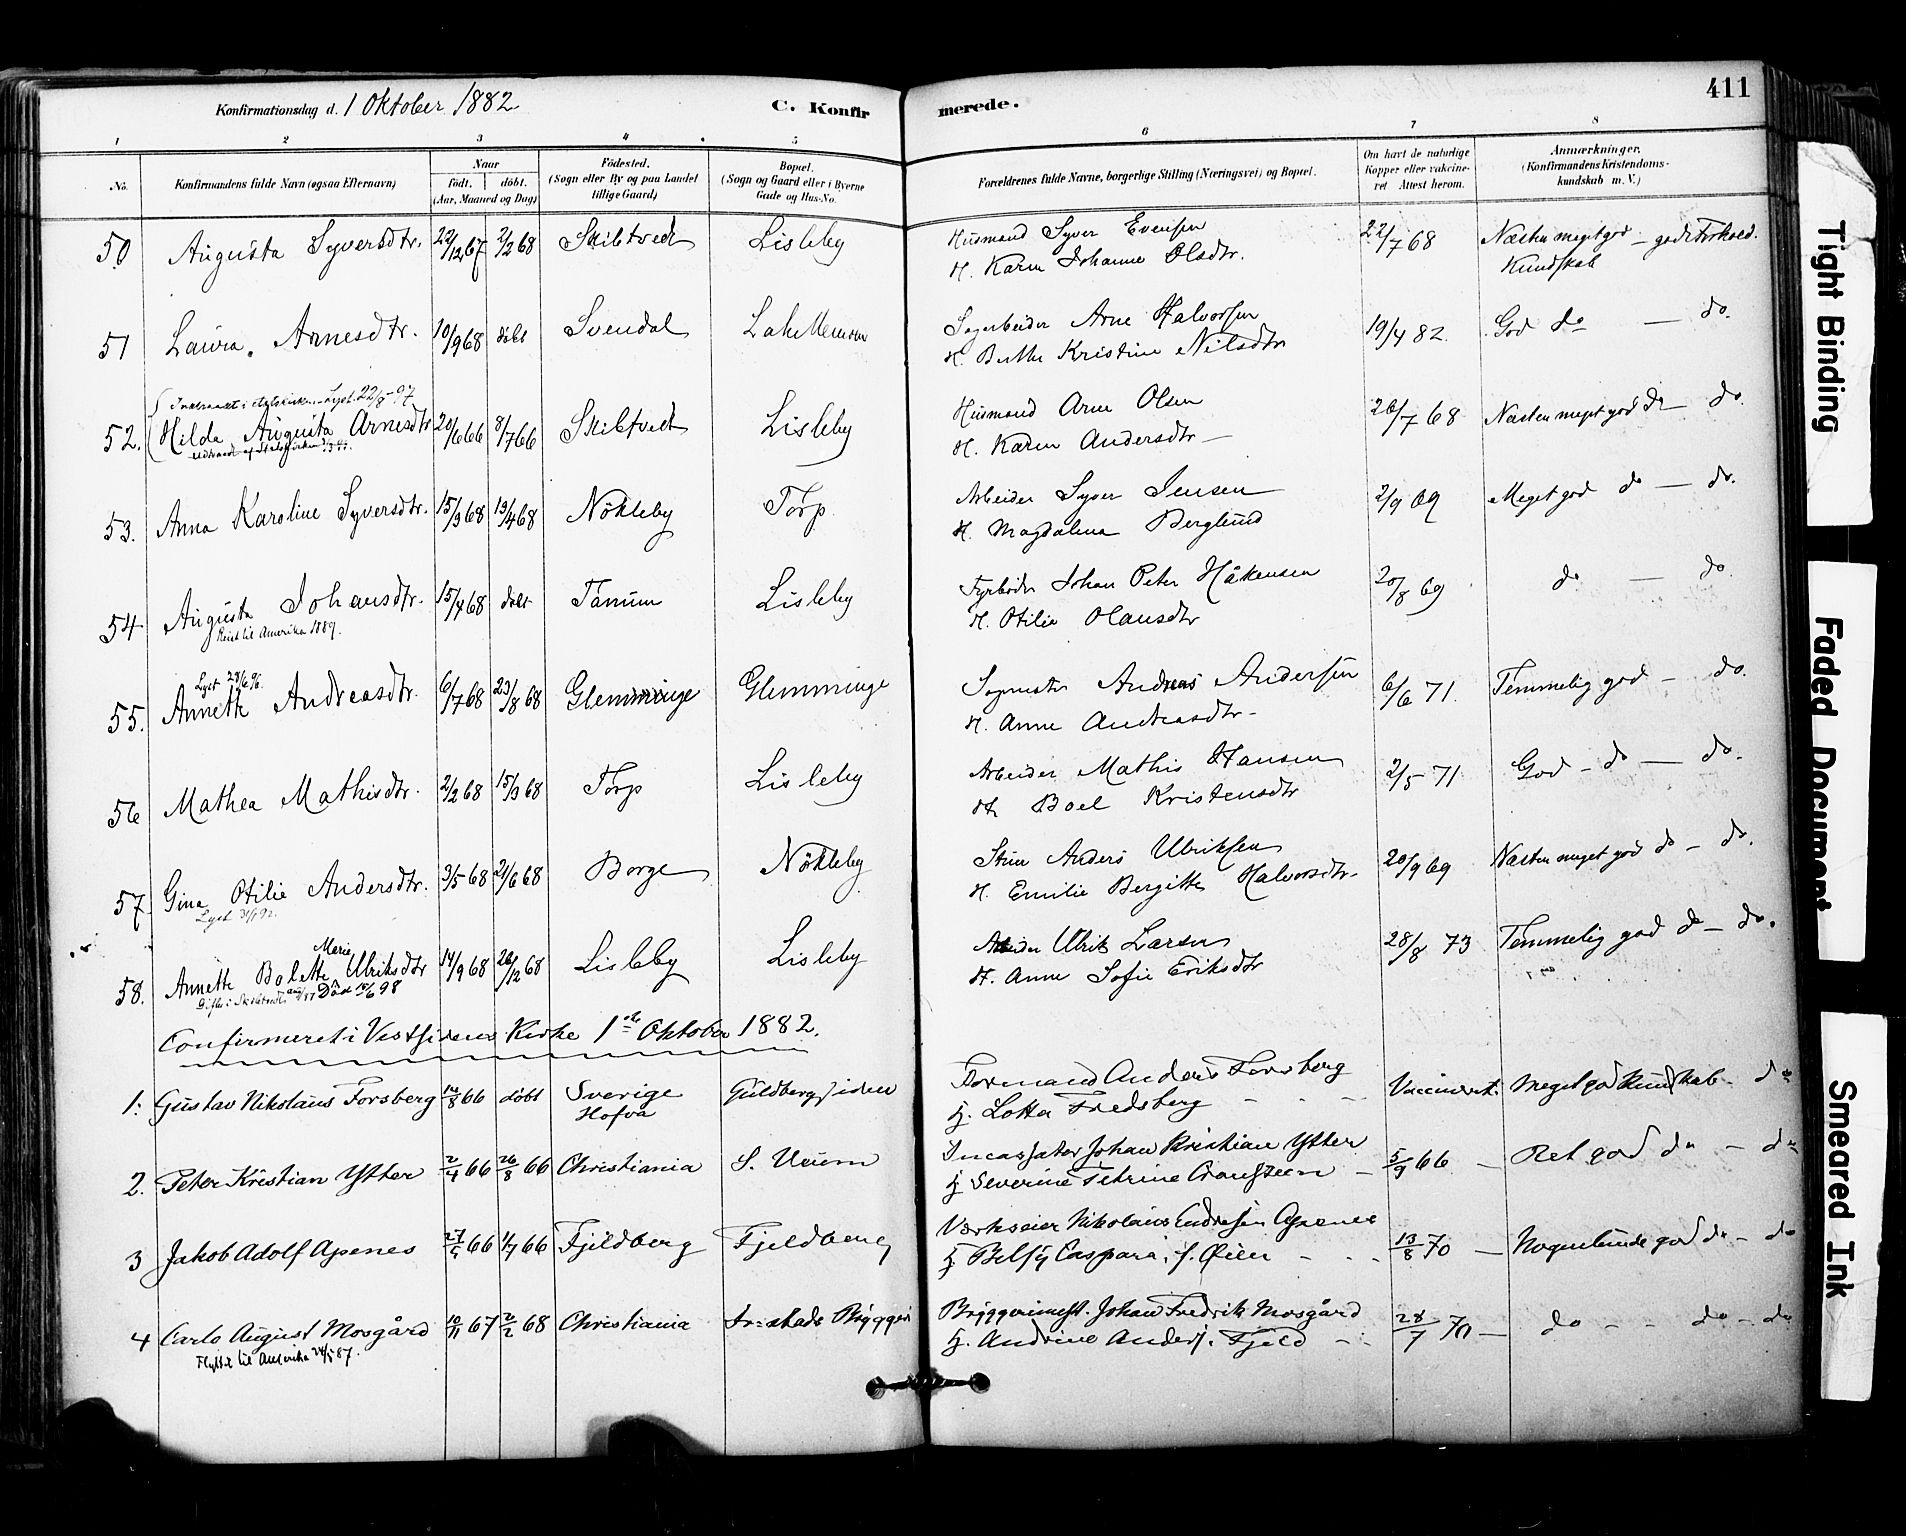 Konfirmationsdag d. 1 Oktober 1882
C. Konfirmerede.
411
1 2 3 4 5 6 7 8
No.
Konfirmandens fulde Navn (ogsaa Efternavn)
Naar
födt. | döbt.
(Aar, Maaned og Dag)
Födested.
(Sogn eller By og paa Landet
tillige Gaard)
Bopæl.
(Sogn og Gaard eller i Byerne
Gade og Hus-No.
Forældrenes fulde Navne, borgerlige Stilling (Næringsvei) og Bopæl.
Om havt de naturlige
Kopper eller vakcine-
ret Attest herom.
Anmærkninger.
(Konfirmandens Kristendoms-
kundskab m. V.)
50 Augusta Syversdtr. 22/12 67 2/2 68 Skibtvedt Lisleby Husmand Syver Evensen 22/7 68 Næsten meget god – godt Forhold.
H. Karen Johanne Olsdtr. Kundskab
51 Laura Arnesdtr. 10/9 68 döbt Svendal Sagarbeider Arne Halvorsen 19/4 82. God do — do.
H. Berthe Kristine Nilsdtr
Lyst. 22/8 - 97
52. Hilda Augusta Arnesdtr 20/6 66 8/7 66 Skibtvedt Lisleby Husmand Arne Olsen 26/7 68 Næsten meget god do — do.
H. Karen Andersdtr —
53. Anna Karoline Syversdtr. 15/3 68 19/4 68 Nökleby Torp Arbeider Syver Jensen 2/9 69 Meget god do — do.
H. Magdalena Berglund
54 Augusta Johansdtr. 15/4 68 döbt Tanum Lisleby Fyrböder Johan Peter Håkensen 20/8 69 do — do
Reist til Amerika 1889. H. Otilie Olausdtr
Lyst 28/6 96.
55. Annette Andreasdtr. 6/7 68 23/8 68 Glemminge Glemminge Sagmester Andreas Andersen 6/6 71. Temmelig god — do.
H. Anne Andreasdtr.
56 Mathea Mathisdtr. 2/2 68 15/3 68 Torp Lisleby Arbeider Mathis Hansen 2/5 71 God — do — do.
H. Boel Kristensdtr
57. Gina Otilie Andersdtr. 3/5 68 21/6 68 Borge Nökleby Stuer Anders Ulriksen 20/9 69 Næsten meget god do — do.
Lyst 31/1 92. H. Emilie Bergitte Halvorsdtr.
Marie
58. Annette Bolette Ulriksdtr 14/9 68 26/12 68 Lisleby Lisleby Arbeider Ulrik Larsen 28/8 73 Temmelig god do — do.
Död 15/6 98 H. Anne Sofie Eriksdtr
Confirmeret i Vestsidens Kirke 1ste Oktober 1882.
1. Gustav Nikolaus Forsberg 14/8 66 döbt Sverige Guldbergsiden Formand Anders Forsberg Vaccineret. Meget god Kundskab. do
Hofva H. Lotta Fredsberg
2. Peter Kristian Ytter 2/4 66 26/8 66 Christiania S. Ueum Incassator Johan Kristian Ytter 5/9 66 — Ret god do — do
H. Severine Petrine
3 Jakob Adolf Apenes 27/5 66 1/7 66 Fjeldberg Fjeldberg Værkseier Nikolaus Endresen Apenes 13/8 70 — Nogenlunde god do — do
H. Betsy Caspara, f. Øien
4 Carlo August Mosgård 10/11 67 2/2 68 Christiania Fr:stads Bryggeri Bryggerimest. Johan Fredrik Mosgård 28/7 70 — do - - do - do
Flyttet til Amerika 24/5 87. H. Andrine Anders. Fjeld
Tight Binding
Faded Document
Smeared Ink